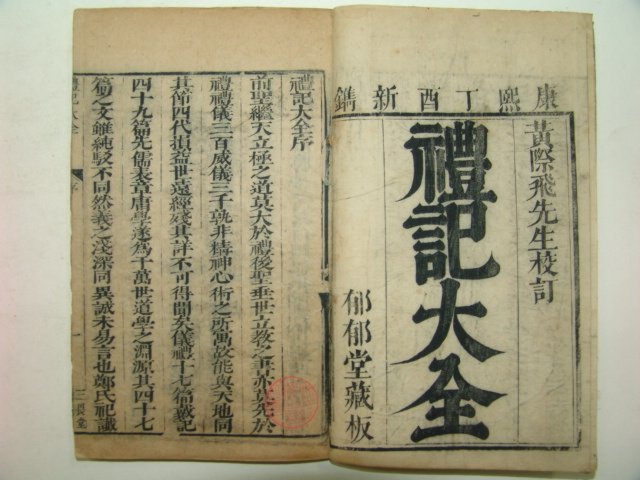 康熙丁酉新鐫
黃際飛先生校訂
禮記大全
郁郁堂藏板
禮記大全序
前聖繼天立極之道莫大於禮後聖垂世立教之書亦莫先於
禮禮儀三百威儀三千孰非精神心術之所寓故能與天地同
其節四代損益世遠經殘其詳不可得聞矣儀禮十七篇戴記
四十九篇先儒表章庸學遂為千萬世道學之淵源其四十七
篇之文雖純駁不同然義之淺深同異誠未易言也鄭氏祖讖
禮記大全
序
一
三畏堂